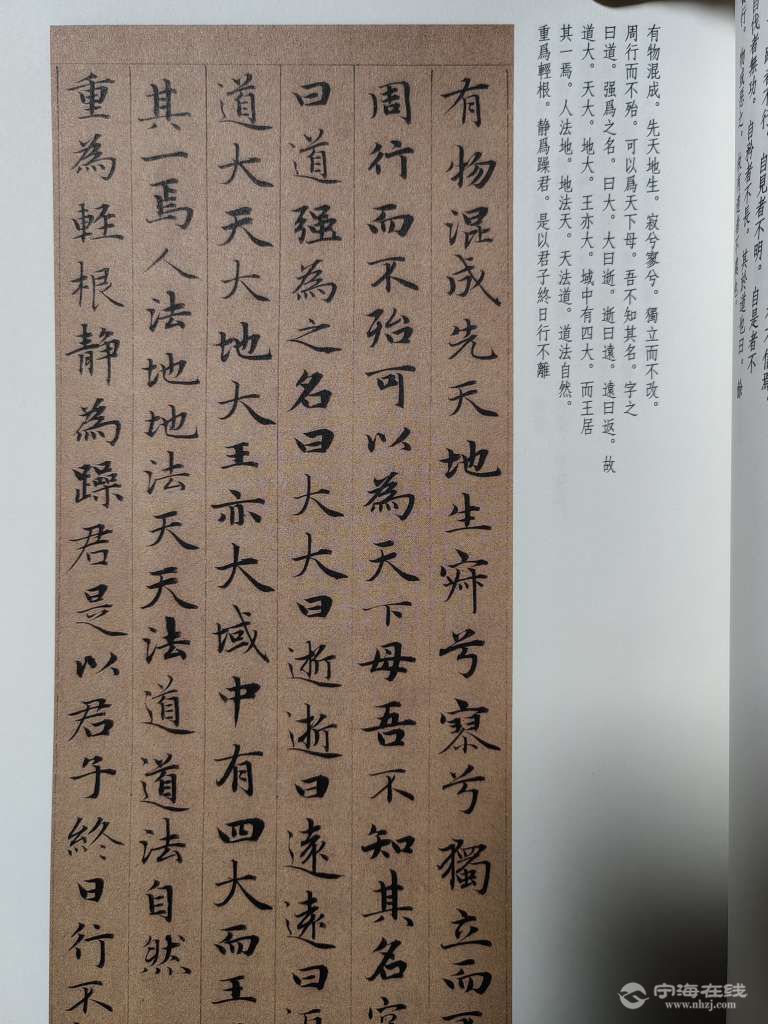 信焉。
者不行。自見者不明。自是者不
自伐者無功。自矜者不長。其於道也曰。餘
有物混成。先天地生。寂兮寥兮。獨立而不改。
周行而不殆。可以爲天下母。吾不知其名。字之
曰道。强爲之名。曰大。大曰逝。逝曰遠。遠曰返。故
道大。天大。地大。王亦大。域中有四大。而王居
其一焉。人法地。地法天。天法道。道法自然。
重爲輕根。静爲躁君。是以君子終日行不離
有物混成先天地生寂兮寥兮獨立而
周行而不殆可以為天下母吾不知其名字
曰道强為之名曰大大曰逝逝曰遠遠曰返
道大天大地大王亦大域中有四大而王
其一焉人法地地法天天法道道法自然
重為輕根静為躁君是以君子終日行不
宁海在线
www.nhzj.com